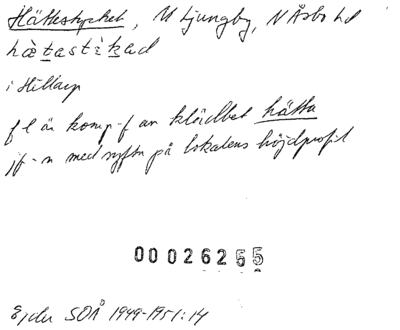 Hättestycket, N Ljungby, N Åsbo hd
hä̀tastìk̲ad
i Hillarp
f l är komp-f av klädbet hätta
jf-n med syftn på lokalens höjdprofil
00026255
Ejder SOÅ 1949-1951:14